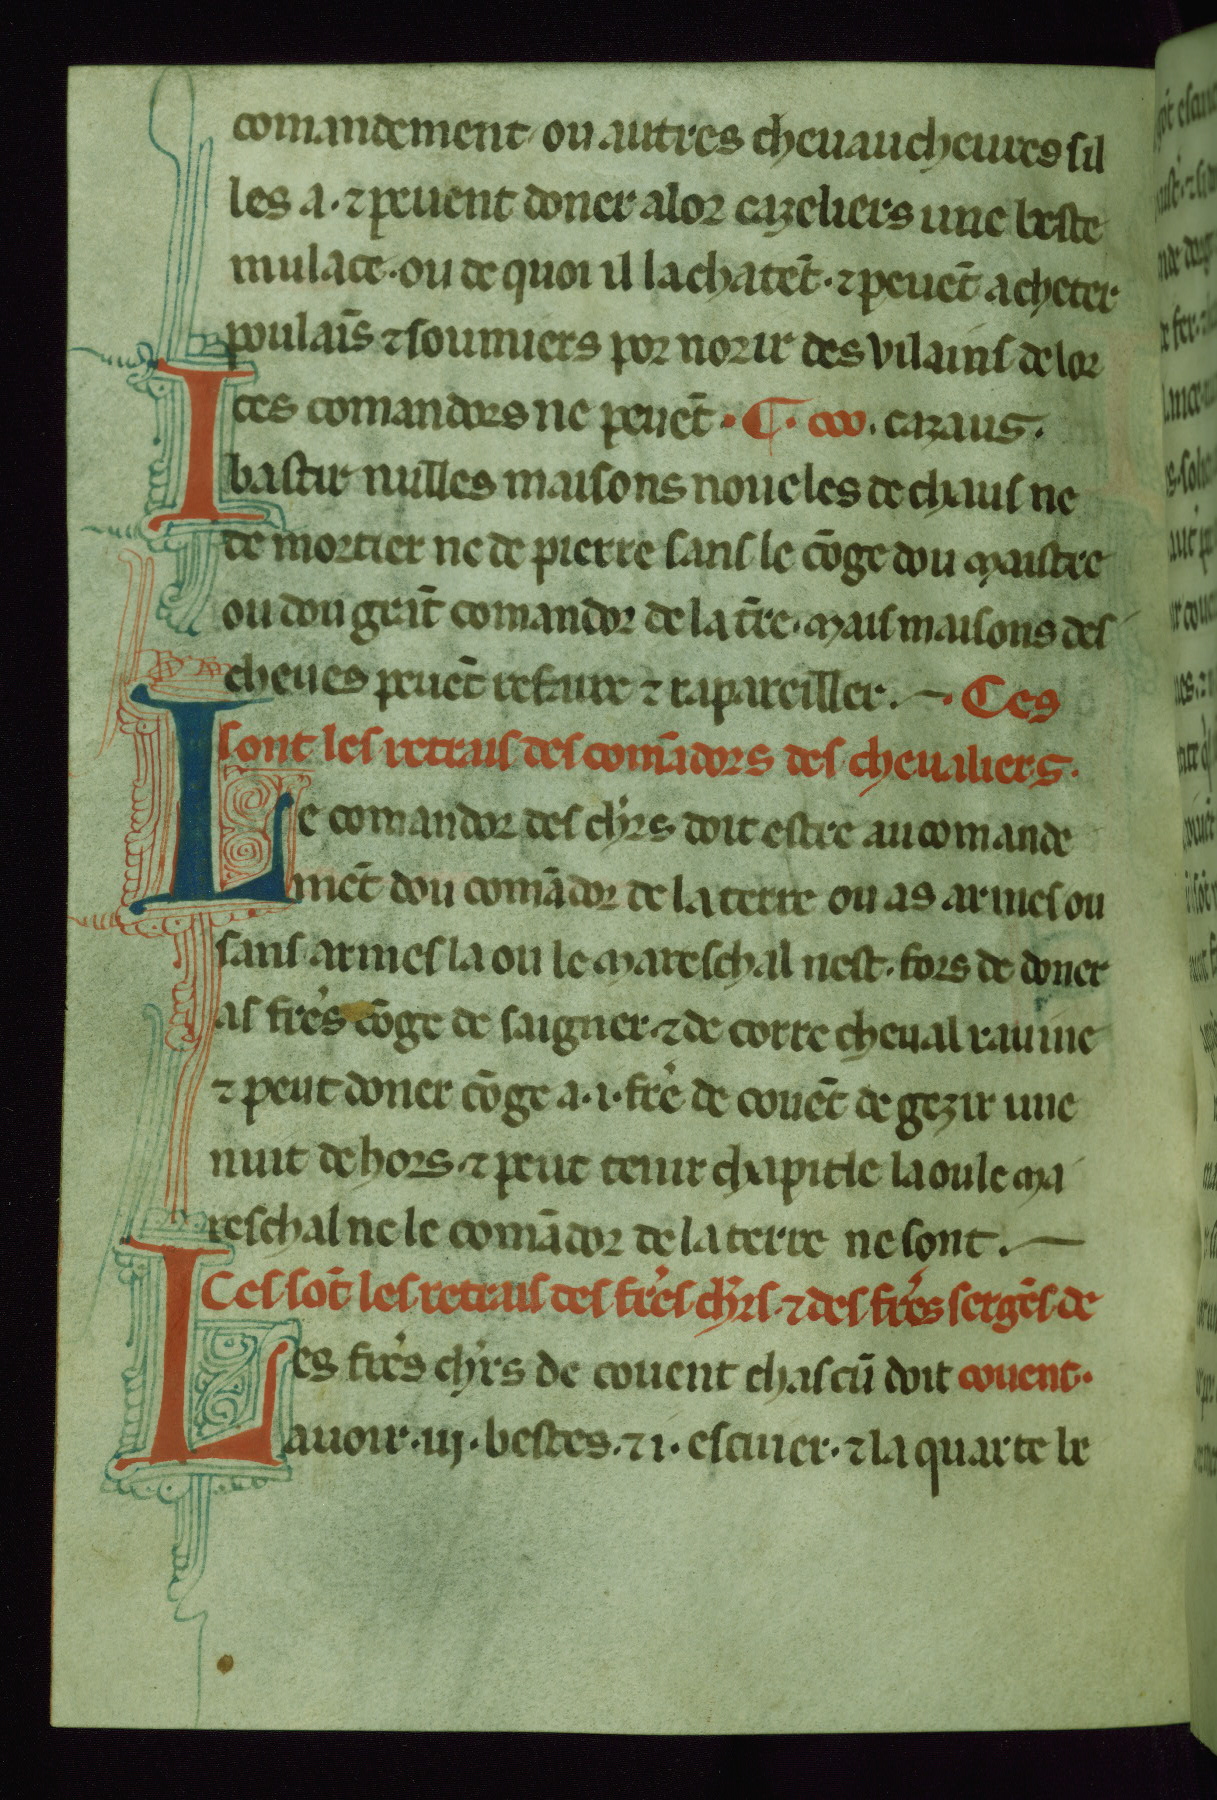 comandement ou autres cheuaucheures sil
les a · ⁊ peuent doner a lor cazeliers une beste
mulace · ou de quoi il lachatēt · ⁊ peuēt acheter
poulaīs ⁊ soumiers por norir des vilains de lor
Ices comandors ne peuēt · C · cazaus ·
bastir nulles maisons noueles de chaus ne
de mortier ne de pierre sans le cōge dou maistre
ou dou grāt comandor de la t̄re · mais maisons des
cheues peuēt refaire ⁊ rapareiller . Ces
sont les retrais des comādors des cheualiers .
Le comandor des ch'rs doit estre au comande
mēt dou comādor de la terre ou as armes ou
sans armes la ou le mareschal nest · fors de doner
as fre's cōge de saigner · ⁊ de corre cheual rauine
⁊ peut doner cōge a · i · fre' de couēt de gezir une
nuit dehors · ⁊ peut tenir chapitle la ou le ma
reschal ne le comādor de la terre ne sont .
Ces sōt les retrais des fre's ch'rs · ⁊ des fre's sergēs de
Les fre's ch'rs de couent chascū doit couent ·
auoir · iij · bestes · ⁊ i · escuier · ⁊ la quarte be